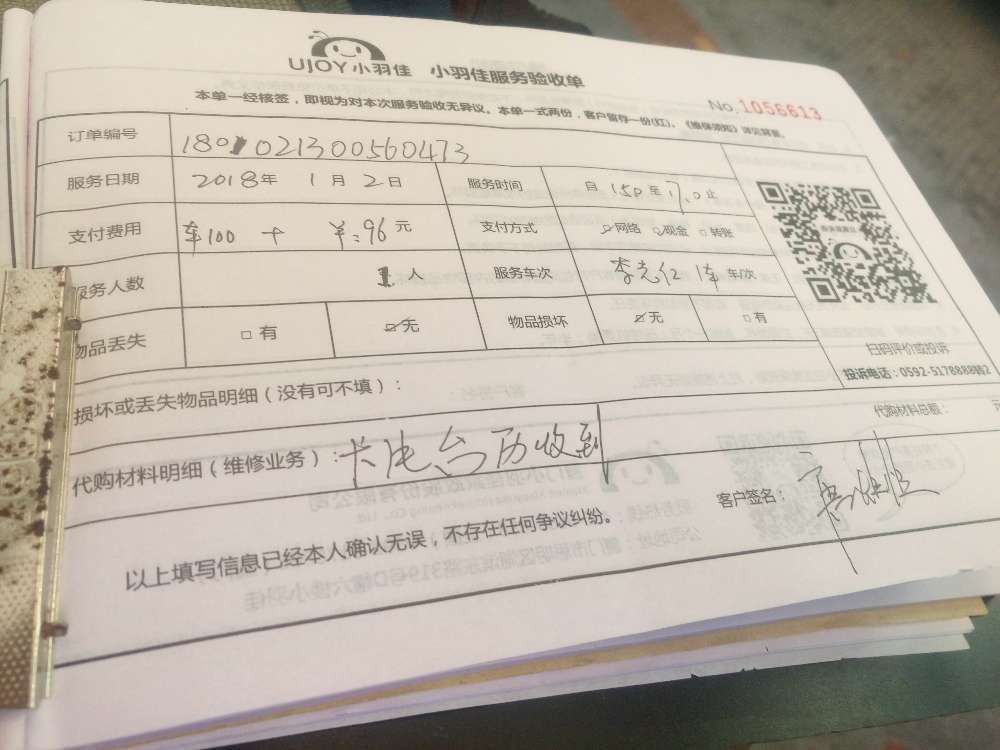 UJOY小羽佳 小羽佳服务验收单
No.1056613
本单一经核签，即视为对本次服务验收无异议。本单一式两份，客户留存一份(红)。《维保须知》详见背面。
订单编号 1801021300560473
服务日期 2018年 1月2日 服务时间 自 150 至 17.0 止
支付费用 车100 + ￥:96元 支付方式 ☑网络 □现金 □转账
服务人数 1人 服务车次 李光仁 1车 车/次
物品丢失 □有 ☑无 物品损坏 ☑无 □有
扫码评价或投诉
投诉电话：0592-5178888转2
损坏或丢失物品明细（没有可不填）：
代购材料总额： 元
代购材料明细（维修业务）：卡电台历收到
客户签名：
以上填写信息已经本人确认无误，不存在任何争议纠纷。